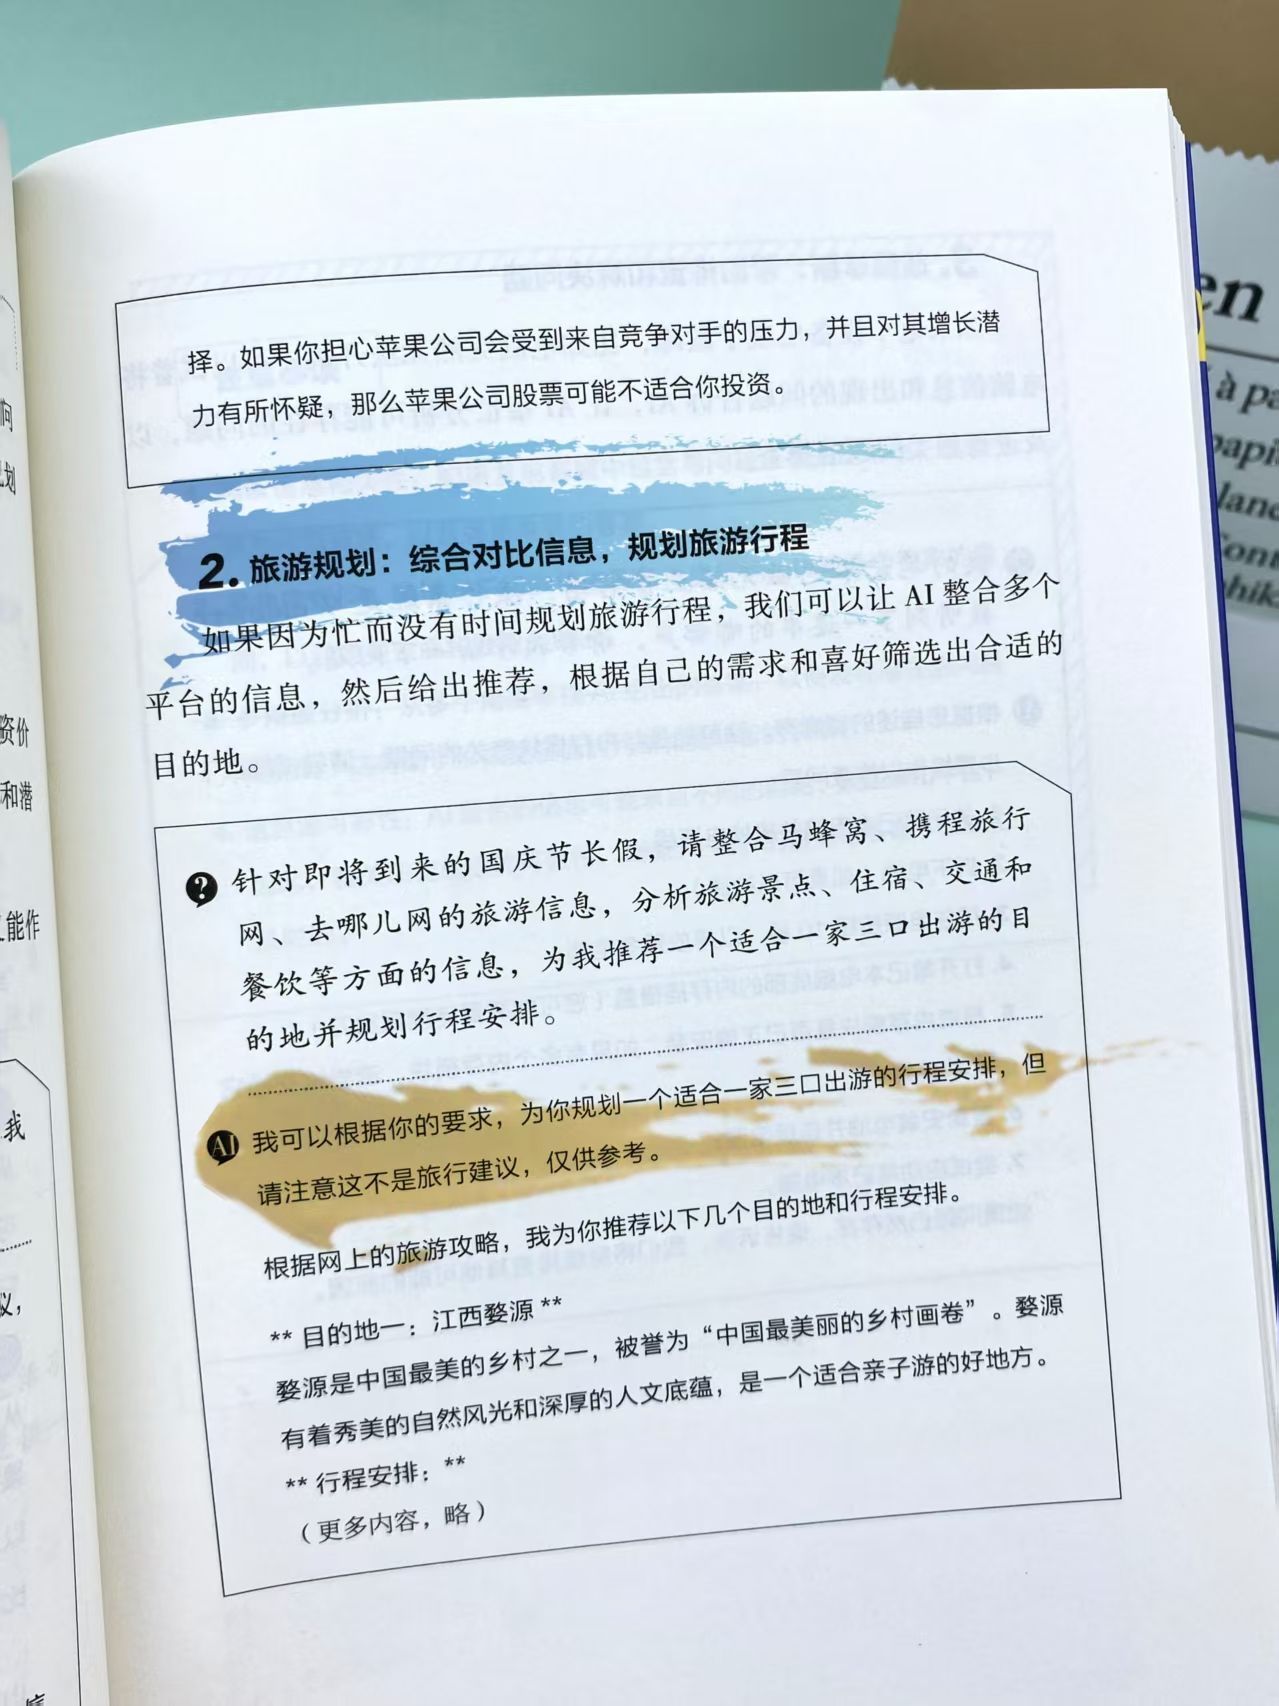 择。如果你担心苹果公司会受到来自竞争对手的压力，并且对其增长潜
力有所怀疑，那么苹果公司股票可能不适合你投资。
2. 旅游规划：综合对比信息，规划旅游行程
如果因为忙而没有时间规划旅游行程，我们可以让 AI 整合多个
平台的信息，然后给出推荐，根据自己的需求和喜好筛选出合适的
目的地。
? 针对即将到来的国庆节长假，请整合马蜂窝、携程旅行
网、去哪儿网的旅游信息，分析旅游景点、住宿、交通和
餐饮等方面的信息，为我推荐一个适合一家三口出游的目
的地并规划行程安排。
AI 我可以根据你的要求，为你规划一个适合一家三口出游的行程安排，但
请注意这不是旅行建议，仅供参考。
根据网上的旅游攻略，我为你推荐以下几个目的地和行程安排。
** 目的地一：江西婺源 **
婺源是中国最美的乡村之一，被誉为“中国最美丽的乡村画卷”。婺源
有着秀美的自然风光和深厚的人文底蕴，是一个适合亲子游的好地方。
** 行程安排：**
（更多内容，略）
问
划
资价
和潜
能作
我
议，
en
à pa
papi
lanc
Font
phik